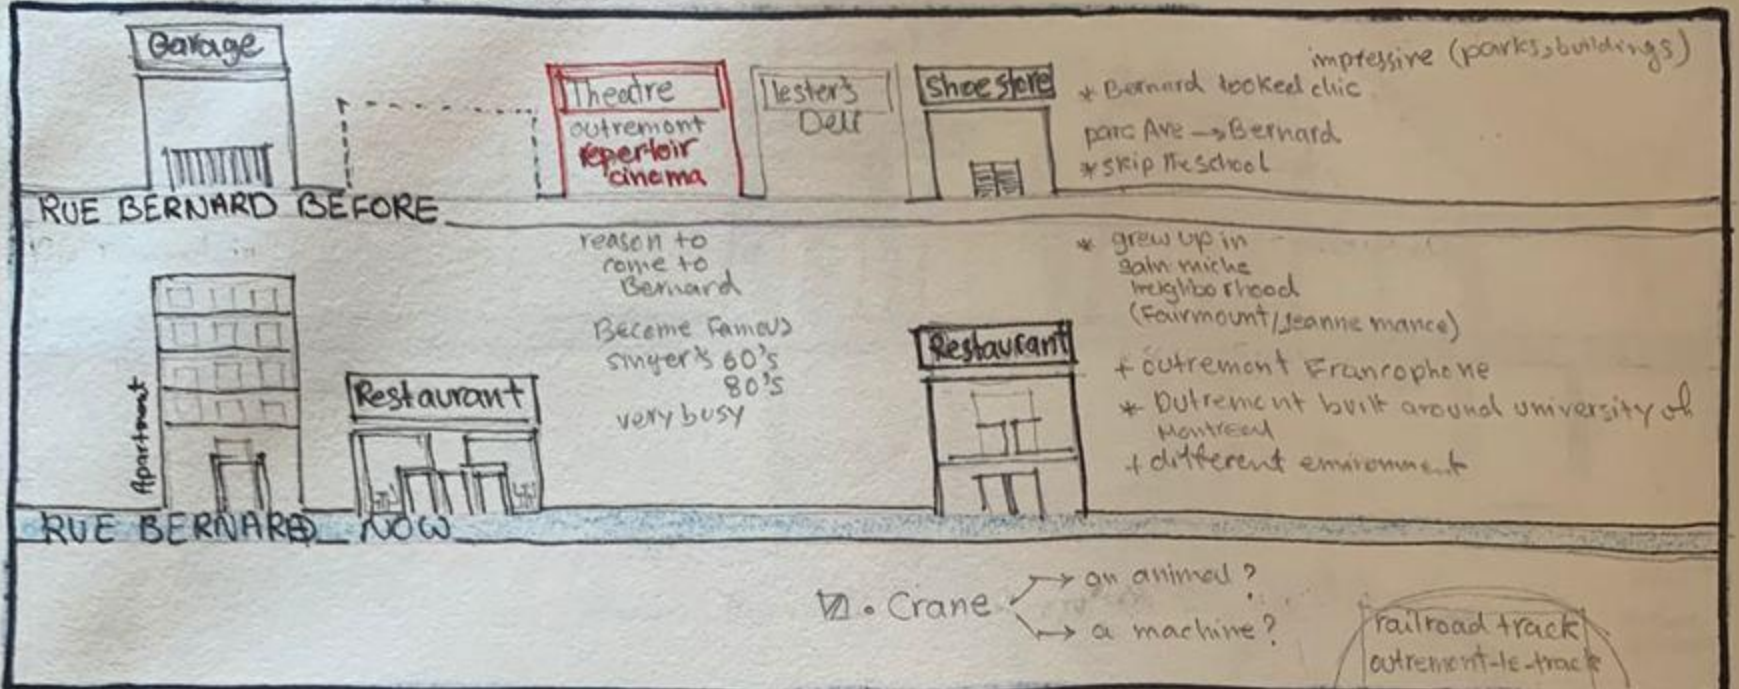 Garage
Theatre
outremont
repertoir
cinema
lester's
Deli
Shoe store
impressive (parks, buildings)
* Bernard looked chic
parc Ave → Bernard
* skip the school
RUE BERNARD BEFORE
reason to
come to
Bernard
Become Famous
singer's 60's
80's
very busy
* grew up in
sain miche
neighborhood
(Fairmount/Jeanne mance)
+ outremont Francophone
* Outremont built around university of
Montreal
+ different environment
Apartment
Restaurant
Restaurant
RUE BERNARD NOW
• Crane → an animal?
→ a machine?
railroad track
outremont-le-track